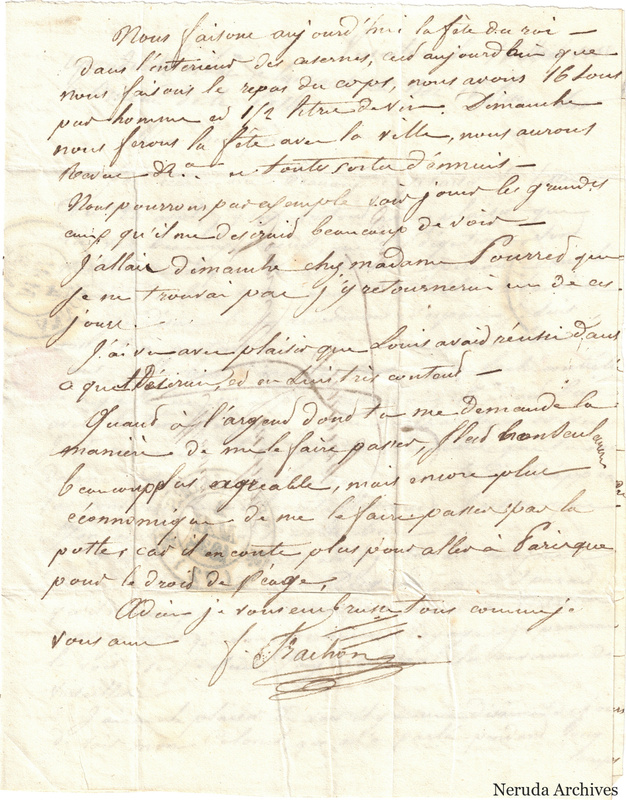 Nous faisons aujourd'hui la fête du roi —
dans l'intérieur des casernes, aujourd'hui que
nous faisons le repas du corps, nous avons 16 sous
par homme et 1/2 litre de vin. Dimanche
nous ferons la fête avec la ville, nous aurons
Revue &a.. et toutes sortes d'ennuis —
Nous pourrons par exemple voir jouer les grandes
eaux qu'il me desiraid beaucoup de voir —
J'allai dimanche chez madame Pourred que
je ne trouvai pas j'y retournerai un de ces
jours.
J'ai vu avec plaisir que Louis avaid réussi dans
a que desirais, ed en suis tris contend —
Quand à l'argend dond tu me demande la
manière de me le faire passer, seulement
beaucoup plus agréable, mais encore plus
économique de me le faire passer par la
potte, car il en coute plus pour aller à Paris que
pour le droid de Péage,
Adieu je vous embrasse tous comme je
vous aime
f. Trachon
Neruda Archives